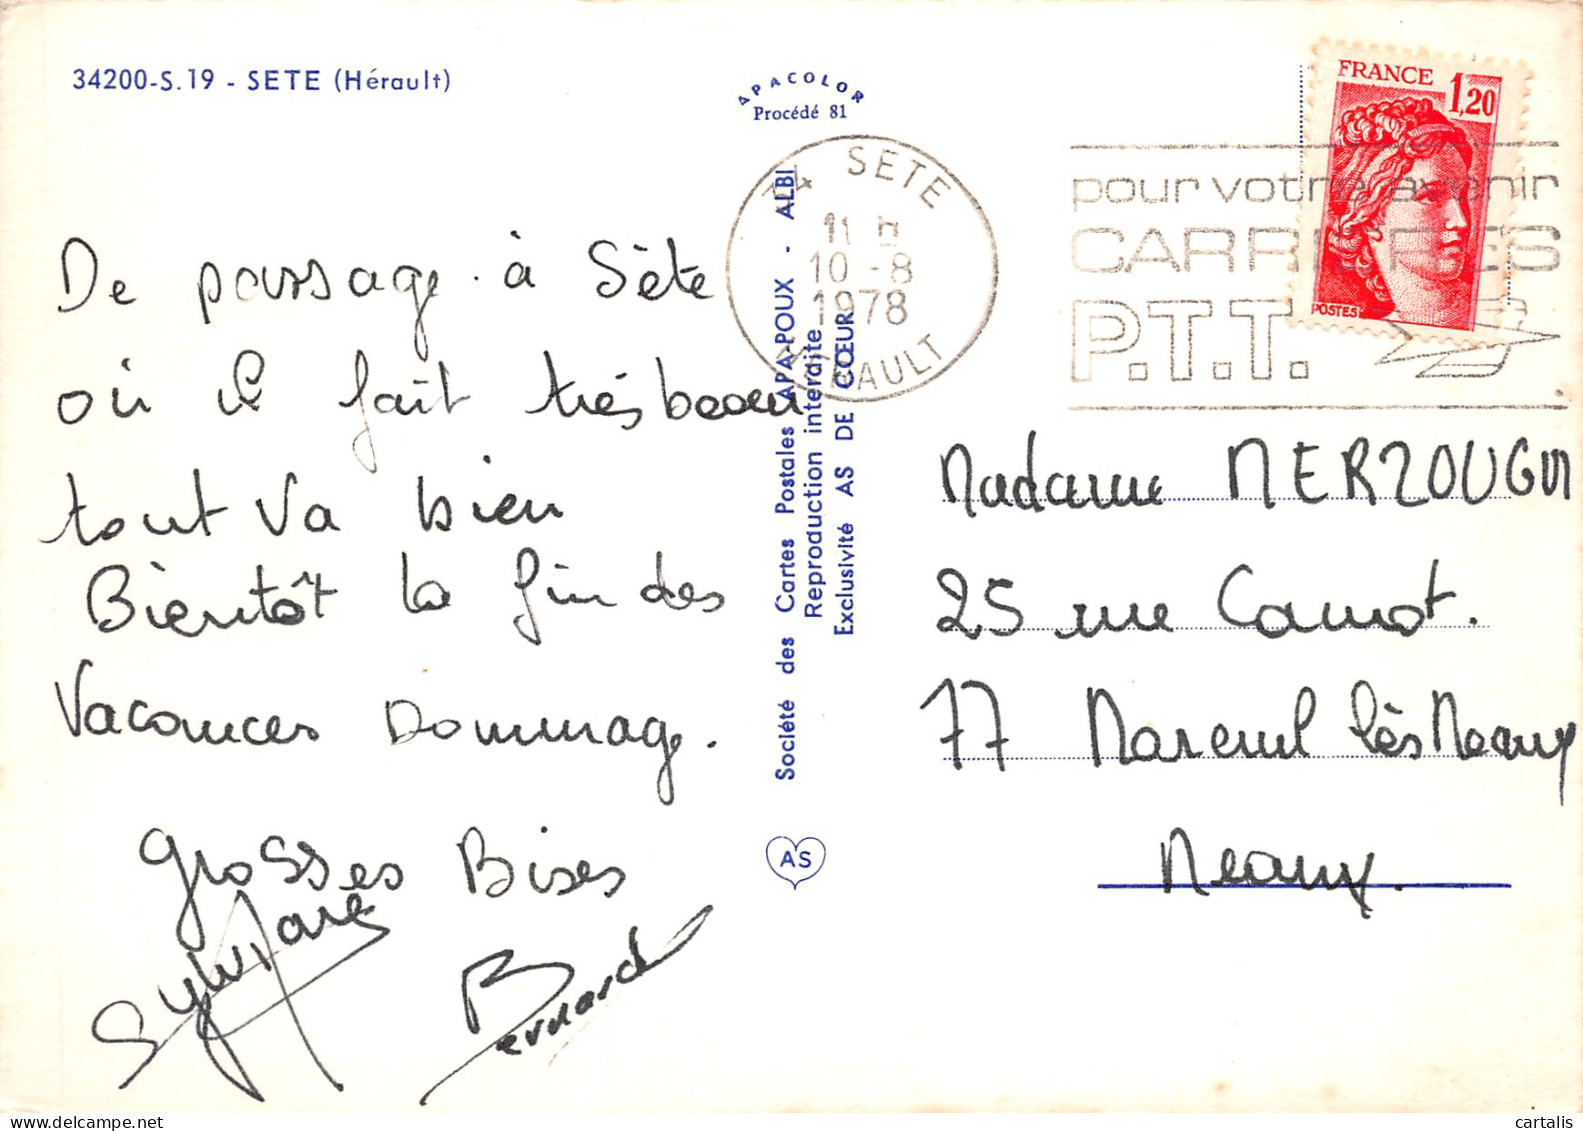 34200-S.19 - SETE (Hérault)
APACOLOR
Procédé 81
De passage à Sète
où il fait très beau
tout va bien
Bientôt la fin des
Vacances Dommage.
grosses Bises
Sylvie
Marc
Bernard
Société des Cartes Postales APA-POUX - ALBI
Reproduction interdite
Exclusivité AS DE CŒUR
AS
34 SETE
11 H
10 -8
1978
HERAULT
pour votre avenir
CARRIERES
P.T.T.
FRANCE 1,20
POSTES
Madame MERZOUGUI
25 rue Carnot.
77 Mareuil lès Meaux
Meaux.
cartalis